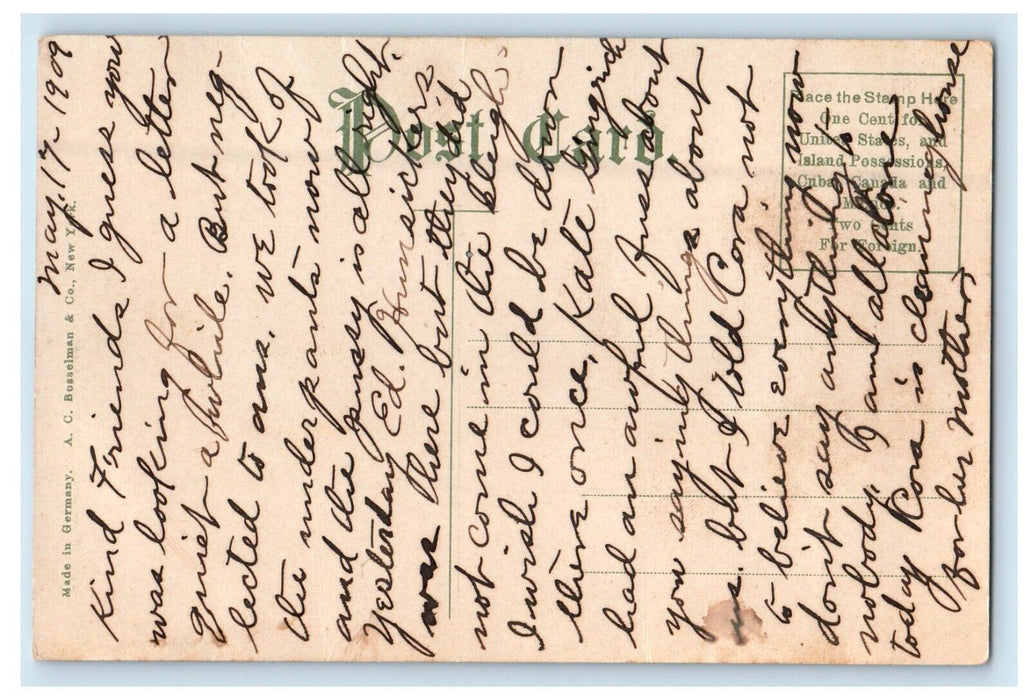 May. 17 1909
Kind Friends I guess you
was looking for a letter
quiet a while. But neg-
lected to ans. we took of
the under pants now
and the pussy is allright.
Yesterday Ed. Hunsickers
was there but they did
not come in the
I wish I could be down
there once, Kate Gingrich
had an awful fuss about
you saying things about
us. but I told Cora not
to believe everything now
don't say anything to
nobody. I am all alone
today Cora is cleaning house
for her Mother,
Post Card.
Place the Stamp Here
One Cent for
United States, and
Island Possessions,
Cuba, Canada and
Mexico.
Two Cents
For Foreign.
Made in Germany. A. C. Bosselman & Co., New York.